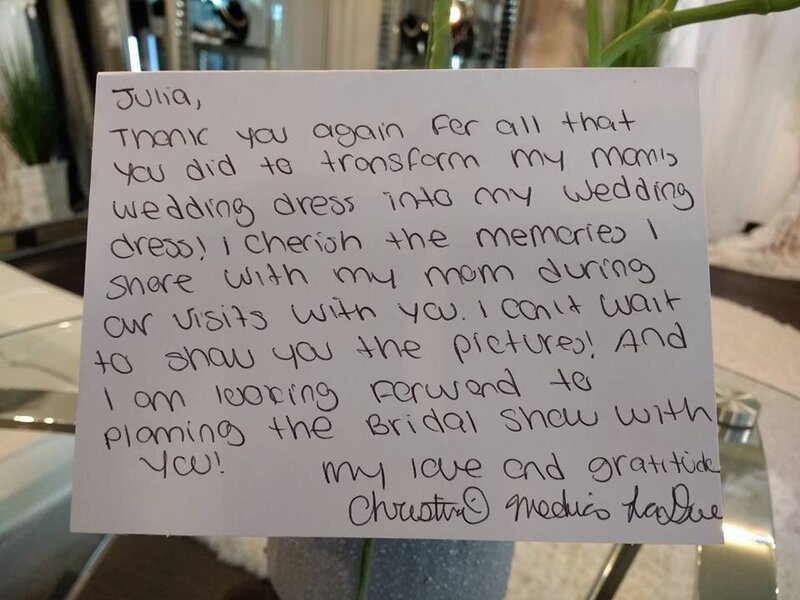 Julia,
Thank you again for all that
you did to transform my mom's
wedding dress into my wedding
dress! I cherish the memories I
share with my mom during
our visits with you. I can't wait
to show you the pictures! And
I am looking forward to
planning the Bridal Show with
you!
my love and gratitude